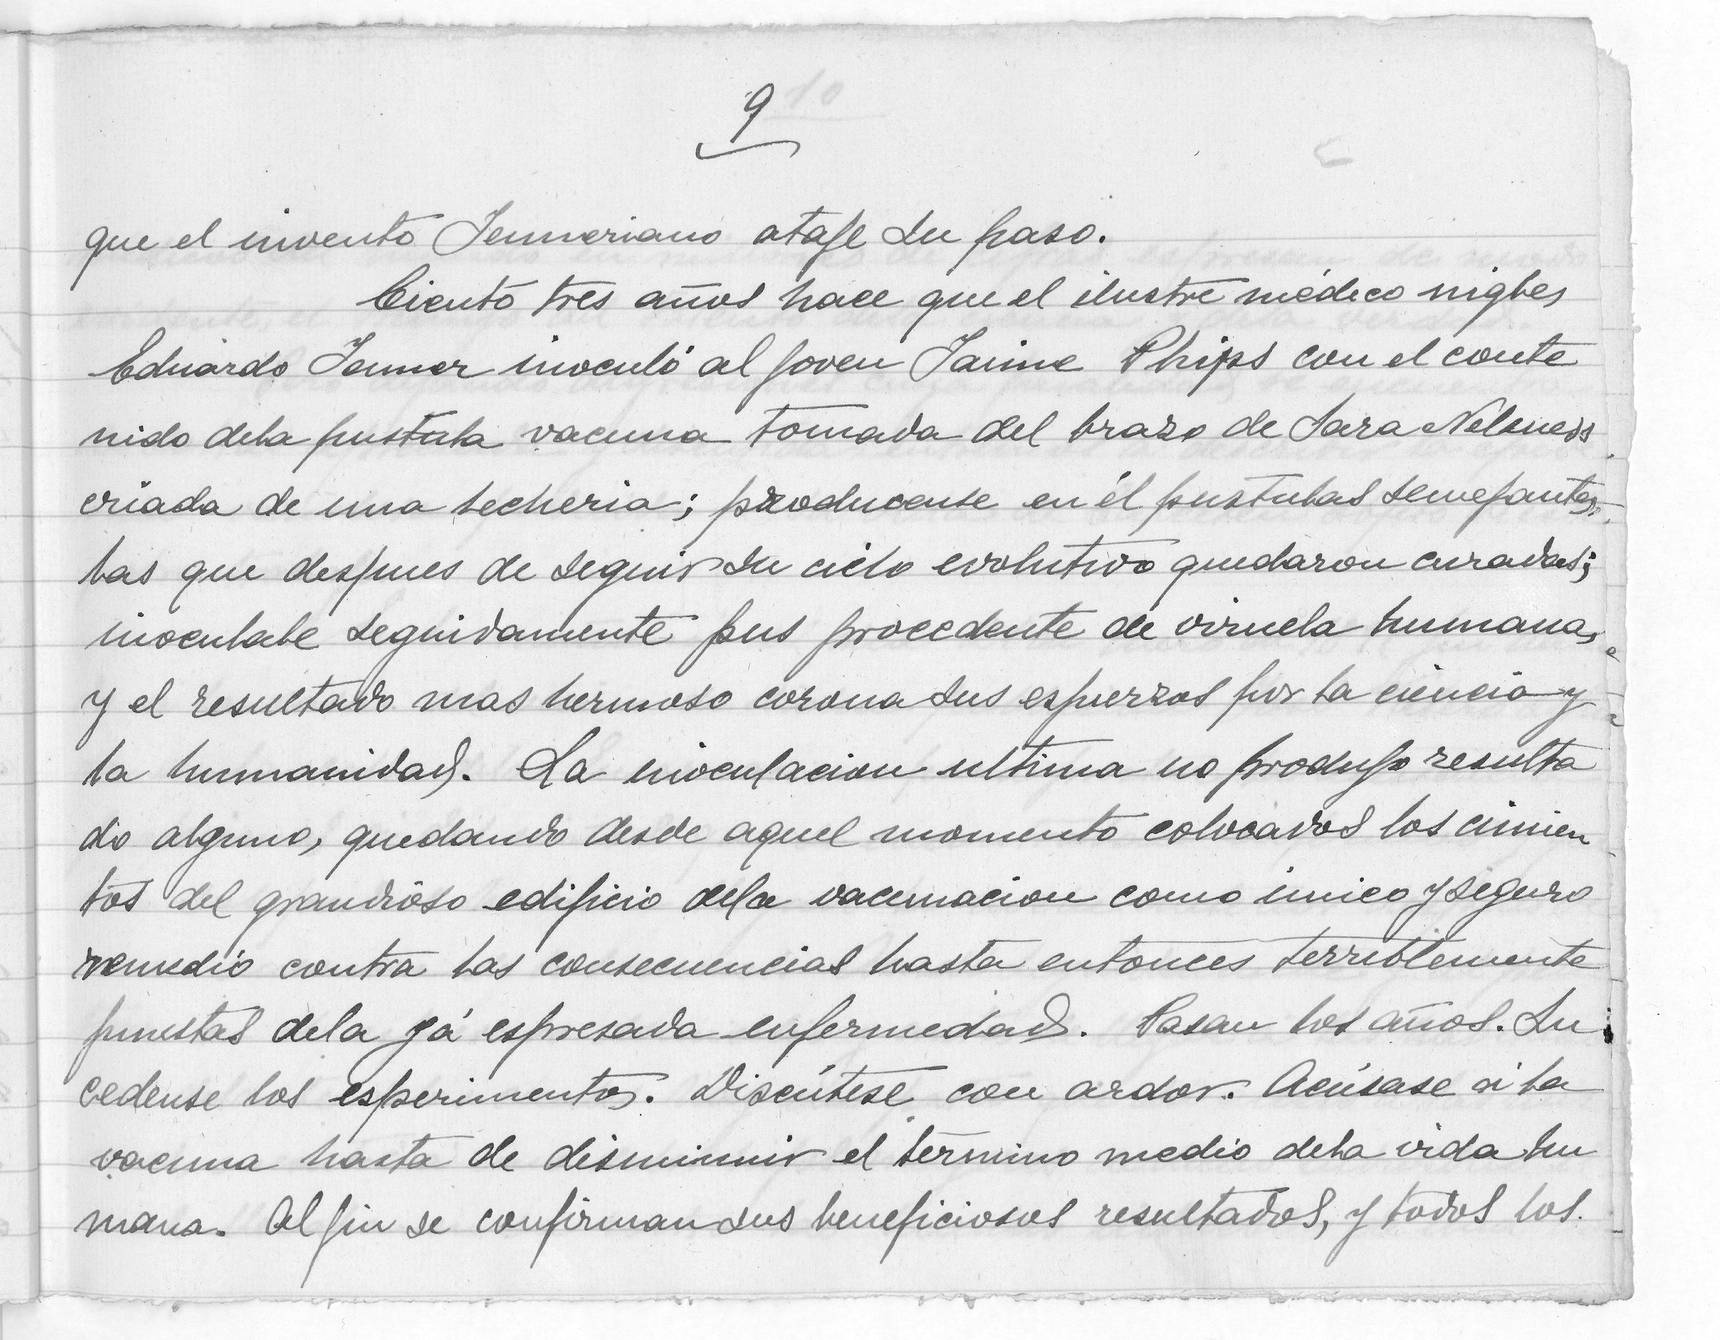 9
que el invento Jenneriano ataje su paso.
Ciento tres años hace que el ilustre médico nigles
Eduardo Jenner inoculó al joven Jaime Phips con el conte
nido dela pustula vacuna tomada del brazo de Sara Nelmess
criada de una lecheria; producense en él pustulas semejantes
las que despues de seguir su ciclo evolutivo quedaron curadas;
inoculale seguidamente pus procedente de viruela humana,
y el resultado mas hermoso corona sus esfuerzos por la ciencia y
la humanidad. La inoculacion ultima no produjo resulta
do alguno, quedando desde aquel momento colocados los cimien
tos del grandioso edificio dela vacunacion como único y seguro
remedio contra las consecuencias hasta entonces terriblemente
funestas dela yá espresada enfermedad. Pasan los años. Su
cedense los esperimentos. Discútese con ardor. Acúsase á la
vacuna hasta de disminuir el término medio dela vida hu
mana. Al fin se confirman sus beneficiosos resultados, y todos los